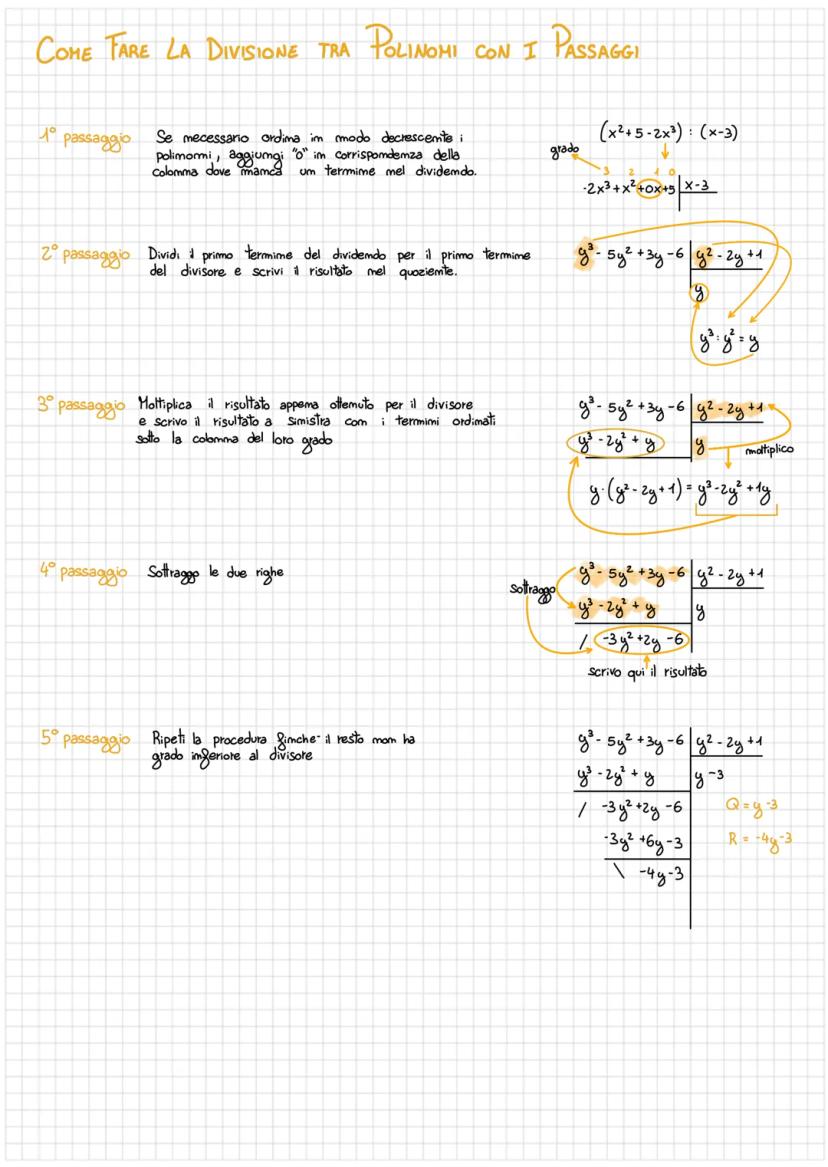 COME FARE LA DIVISIONE TRA POLINOMI CON I PASSAGGI
1° passaggio
Se necessario ordina in modo decrescente i
polinomni, aggiungi "0" in corrispondenza della
colonna dove manca un termine nel dividendo.
(x²+5-2x³) : (x-3)
grado
3 2 1 0
-2x³+x²+0x+5 x-3
2° passaggio
Dividi il primo termine del dividendo per il primo termine
del divisore e scrivi il risultato nel quoziente.
y³ - 5y² + 3y - 6 y² - 2y + 1
y
y³ : y² = y
3° passaggio
Moltiplica il risultato appena ottenuto per il divisore
e scrivo il risultato a sinistra con i termini ordinati
sotto la colonna del loro grado
y³ - 5y² + 3y - 6 y² - 2y + 1
y³ - 2y² + y y
moltiplico
y·(y² - 2y + 1) = y³ - 2y² + 1y
4° passaggio
Sottraggo le due righe
sottraggo
y³ - 5y² + 3y - 6 y² - 2y + 1
y³ - 2y² + y y
/ -3y² + 2y - 6
scrivo qui il risultato
5° passaggio
Ripeti la procedura finche' il resto non ha
grado inferiore al divisore
y³ - 5y² + 3y - 6 y² - 2y + 1
y³ - 2y² + y y - 3
/ -3y² + 2y - 6 Q = y - 3
-3y² + 6y - 3 R = -4y - 3
\ -4y - 3